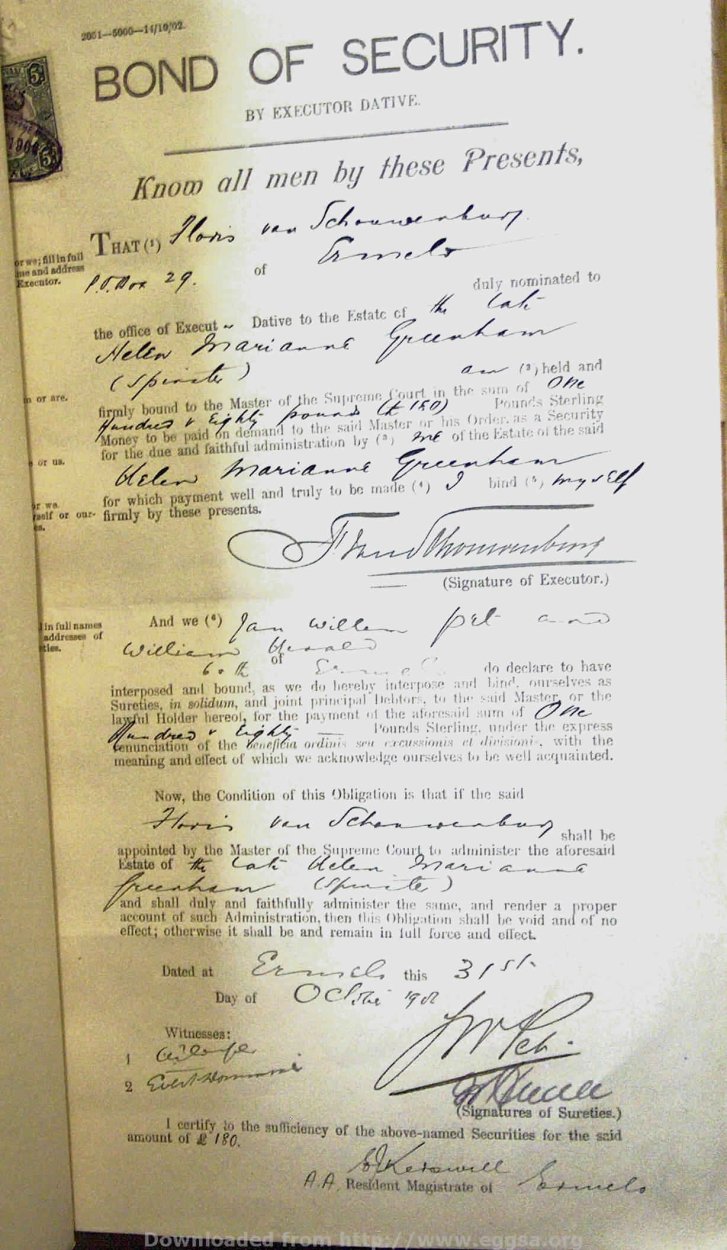 2051—5000—14/10/02.
BOND OF SECURITY.
BY EXECUTOR DATIVE.
Know all men by these Presents,
or we; fill in full
me and address
Executor.
THAT (¹) Floris van Schouwenburg
P.O. Box 29. of Ermelo
duly nominated to
the office of Execut Dative to the Estate of the late
Helen Marianne Greenham
(Spinster) am (²) held and
m or are.
firmly bound to the Master of the Supreme Court in the sum of One
Hundred & Eighty pounds (£ 180) Pounds Sterling
Money to be paid on demand to the said Master or his Order, as a Security
for the due and faithful administration by (³) me of the Estate of the said
e or us.
Helen Marianne Greenham
for which payment well and truly to be made (⁴) I bind (⁵) myself
or we
yself or our-
es.
firmly by these presents.
(Signature of Executor.)
in full names
addresses of
ties.
And we (⁶) Jan Willem Pet and
William
both of Ermelo do declare to have
interposed and bound, as we do hereby interpose and bind, ourselves as
Sureties, in solidum, and joint principal Debtors, to the said Master, or the
lawful Holder hereof, for the payment of the aforesaid sum of One
Hundred & Eighty Pounds Sterling, under the express
renunciation of the beneficia ordinis seu excussionis et divisionis, with the
meaning and effect of which we acknowledge ourselves to be well acquainted.
Now, the Condition of this Obligation is that if the said
Floris van Schouwenburg shall be
appointed by the Master of the Supreme Court to administer the aforesaid
Estate of the late Helen Marianne
Greenham (Spinster)
and shall duly and faithfully administer the same, and render a proper
account of such Administration, then this Obligation shall be void and of no
effect; otherwise it shall be and remain in full force and effect.
Dated at Ermelo this 31st
Day of October 1902
Witnesses:
1
2
(Signatures of Sureties.)
I certify to the sufficiency of the above-named Securities for the said
amount of £ 180.
A.A. Resident Magistrate of Ermelo
Downloaded from http://www.eggsa.org